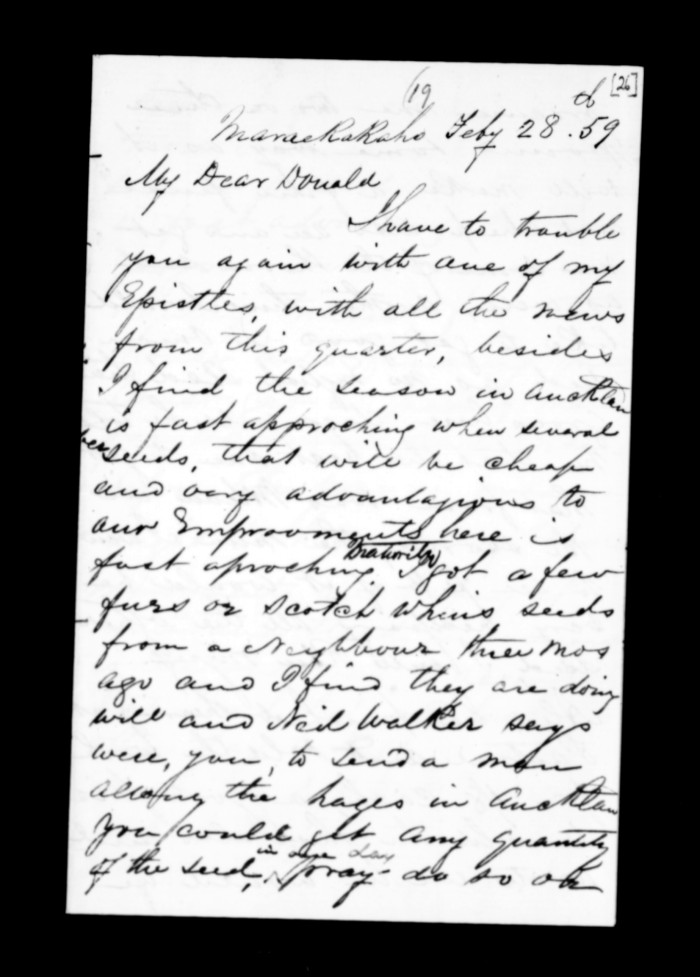 (19
[26]
Maraekakaho Feby 28. 59
My Dear Donald
I have to trouble
you again with one of my
Epistles, with all the news
from this quarter, besides
I find the season in Aucklan
is fast approching when several
seeds, that will be cheap
and very advantagious to
our Improovments here is
Maturity
fast aproching. I got a few
furs or Scotch Whins seeds
from a Neighbour three mos
ago and I find they are doing
will and Neil Walker says
were, you, to send a man
allong the hages in Aucklan
you could get any quantity
in one day
of the seed, pray do so or